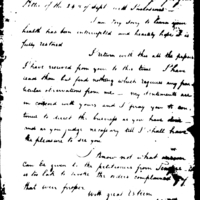 letter of the 24th of Sept with Inclosures. I
am very sorry to learn your
health has been interrupted and humbly hope it is
fully restored
I return with this all the papers
I have received from you to this time. I have
read them but find nothing which requires any
observations from me - my sentiments are
in accord with yours and I pray you to con-
tinue to direct the business as you have done
and as you judge necessary till I shall have
the pleasure to see you
I know not what
can be given to the petitioners from
is too late to invoke the orders complained
that were proper
With great Esteem